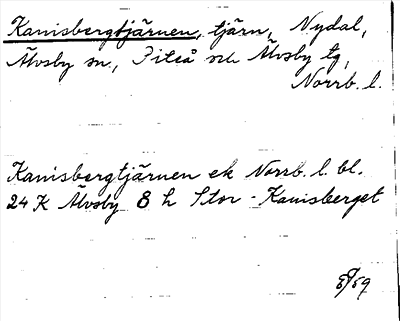 Kanisbergtjärnen, tjärn, Nydal,
Älvsby sn., Piteå och Älvsby tg,
Norrb. l.
Kanisbergtjärnen ek Norrb. l. bl.
24 K Älvsby 8 h Stor-Kanisberget